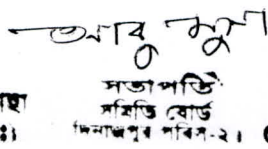 আবু মুসা
সভাপতি
সমিতি বোর্ড
দিনাজপুর পবিস-২।